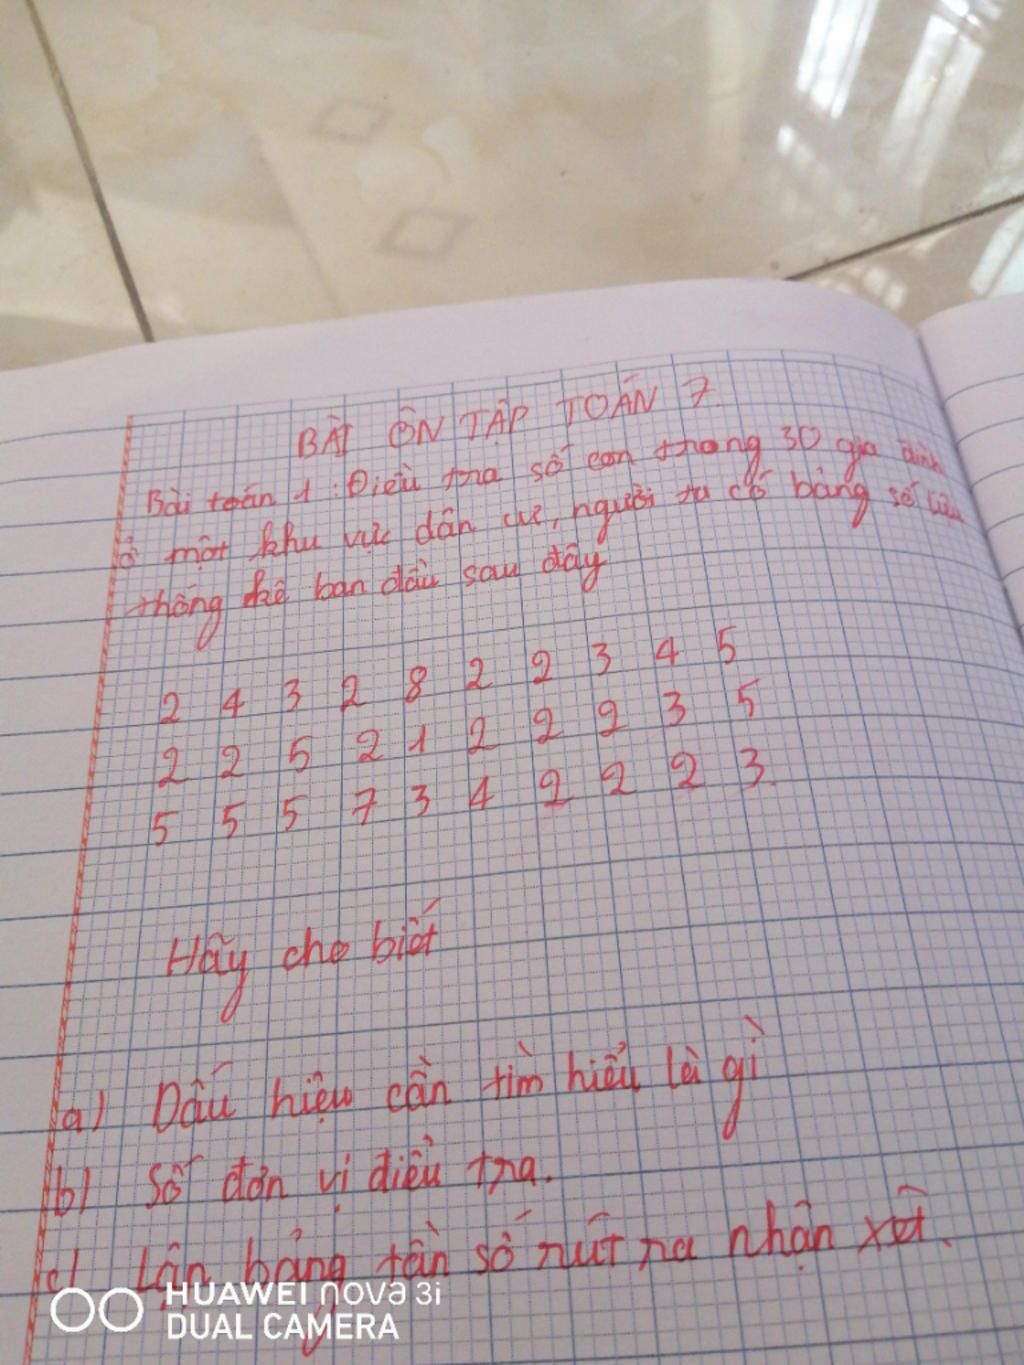 BÀI ÔN TẬP TOÁN 7
Bài toán 1: Điều tra số con trong 30 gia đình
ở một khu vực dân cư, người ta có bảng số liệu
thống kê ban đầu sau đây
2 4 3 2 8 2 2 3 4 5
2 2 5 2 1 2 2 2 3 5
5 5 5 7 3 4 2 2 2 3.
Hãy cho biết
a) Dấu hiệu cần tìm hiểu là gì
b) Số đơn vị điều tra.
c) Lập bảng tần số rút ra nhận xét.
HUAWEI nova 3i
DUAL CAMERA